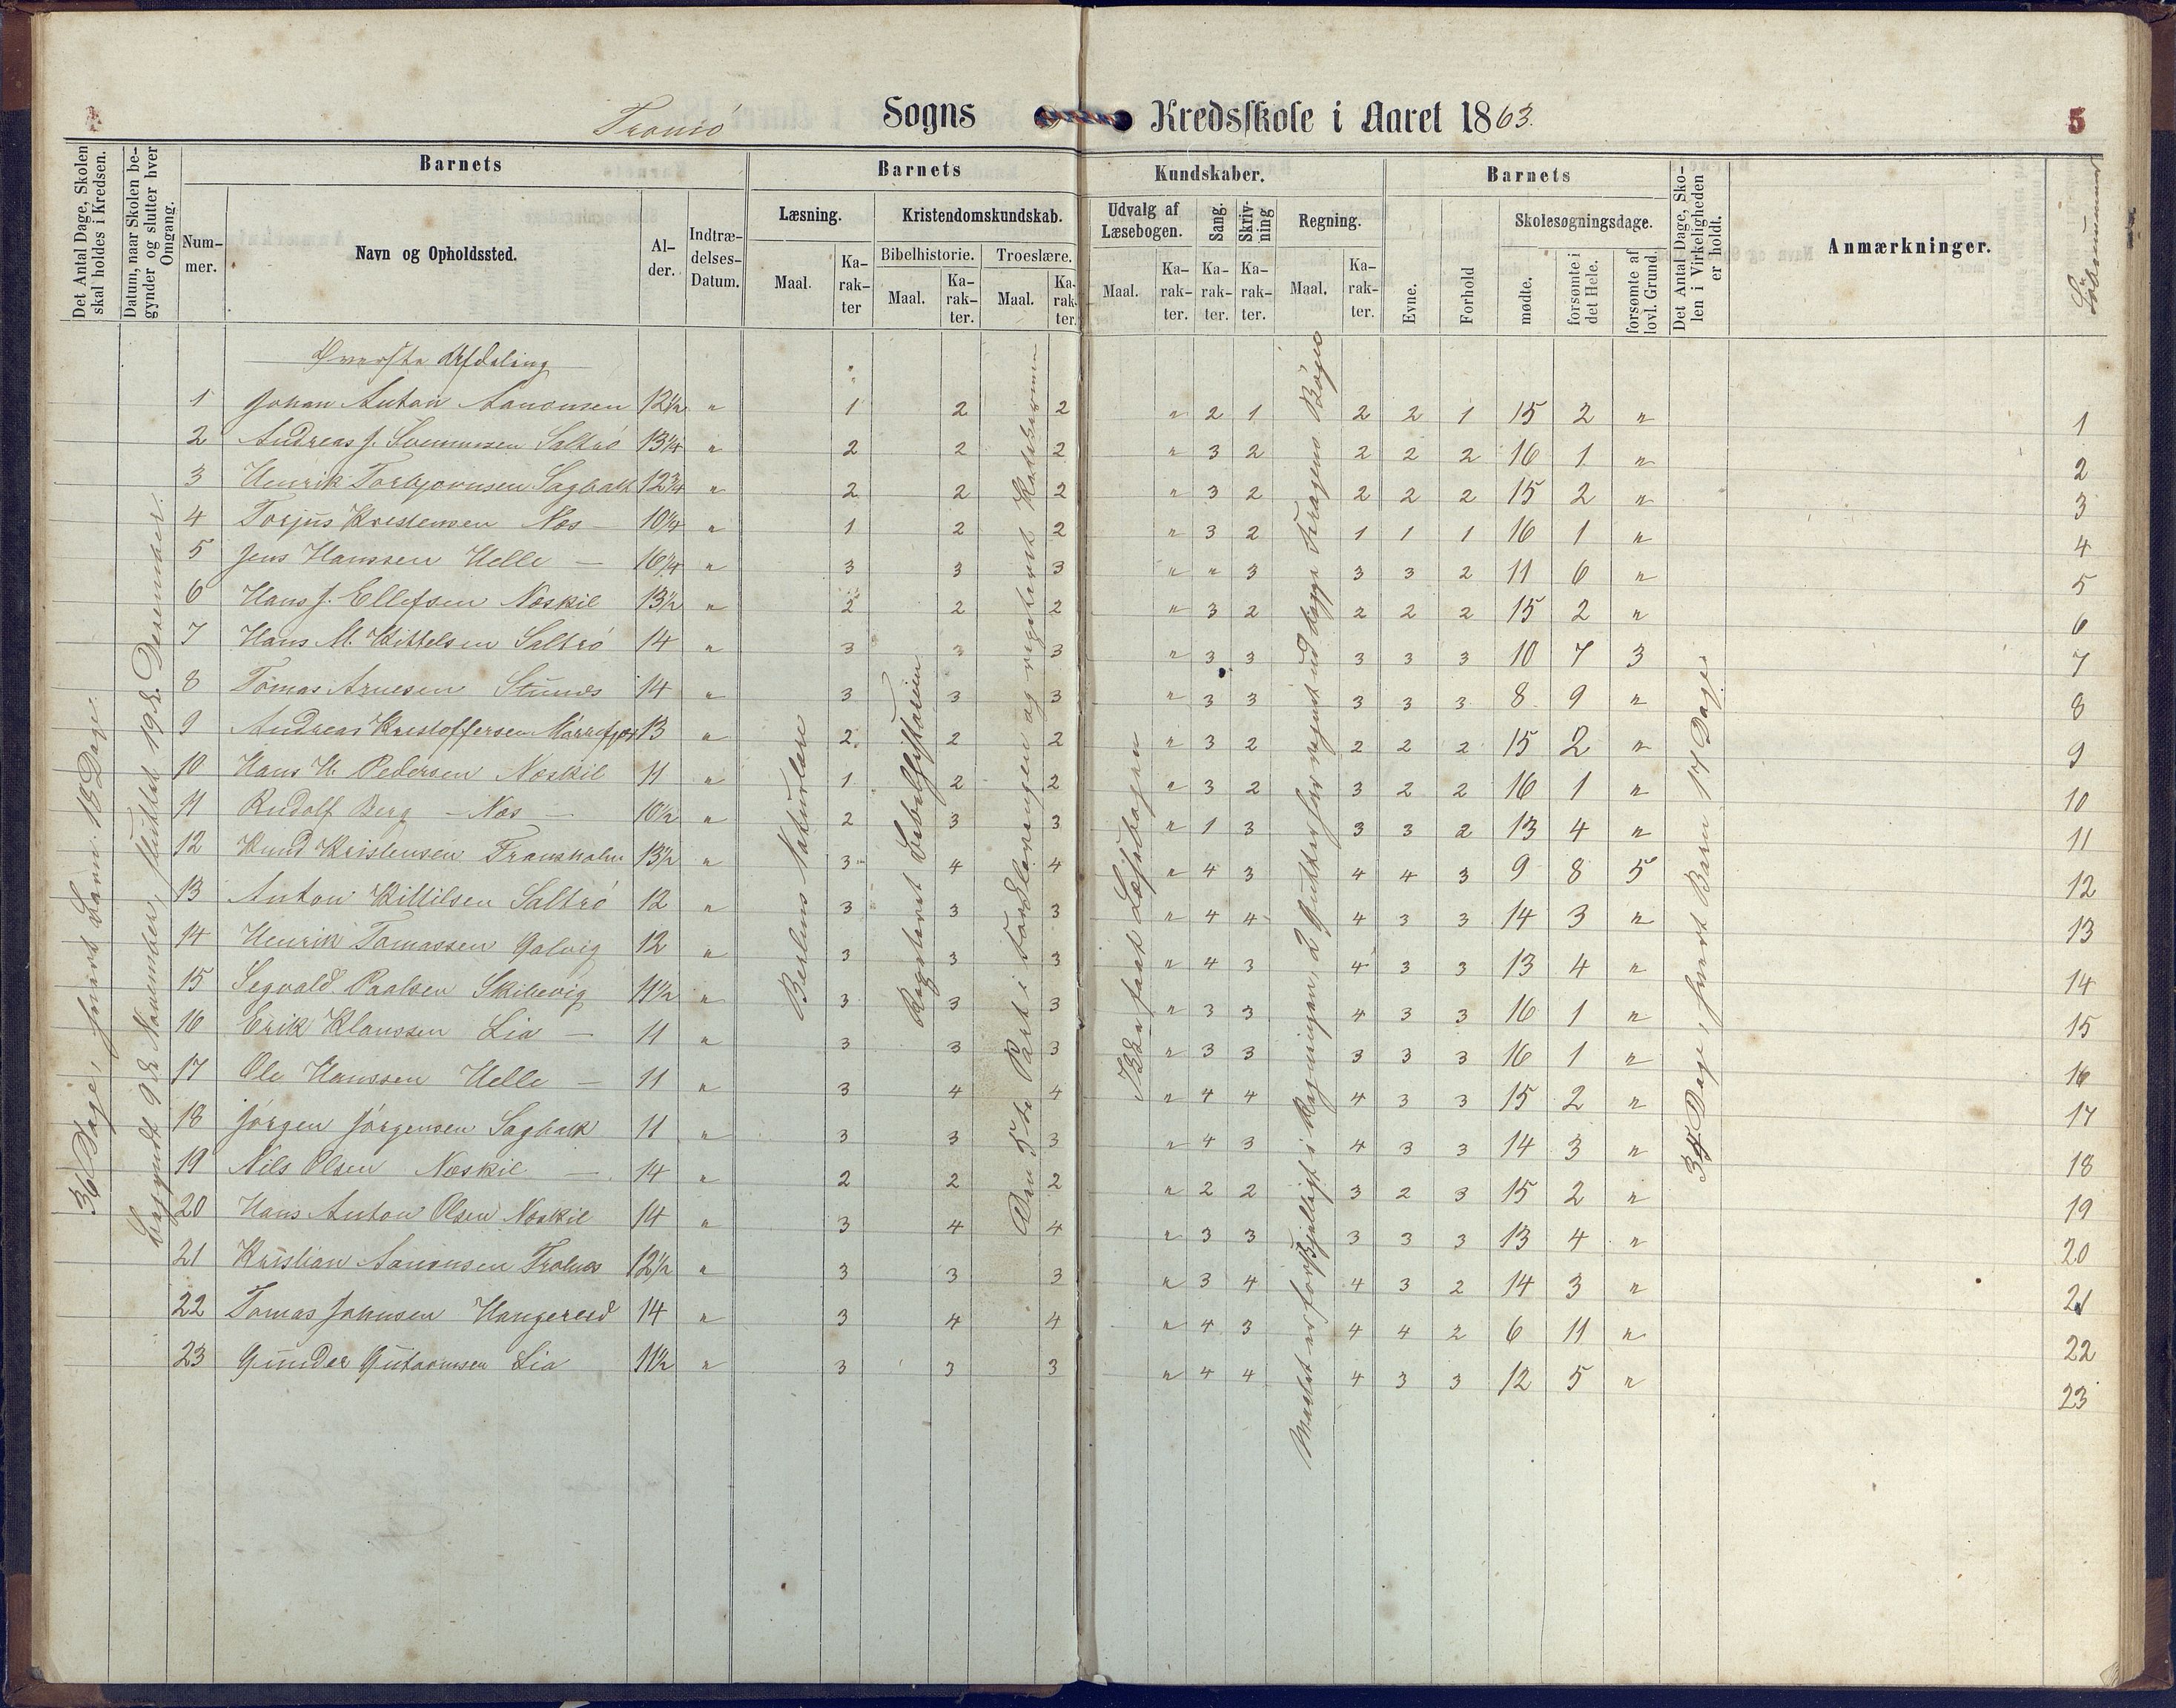 Tromö Sogns Kredsskole i Aaret 1863. 5
Det Antal Dage, Skolen skal holdes i Kredsen.
Datum, naar Skolen begynder og slutter hver Omgang.
Barnets
Nummer.
Navn og Opholdssted.
Alder.
Indtrædelses-Datum.
Barnets Kundskaber.
Læsning.
Maal.
Karakter
Kristendomskundskab.
Bibelhistorie.
Maal.
Karakter.
Troeslære.
Maal.
Karakter.
Udvalg af Læsebogen.
Maal.
Karakter.
Sang.
Karakter.
Skrivning
Karakter.
Regning.
Maal.
Karakter.
Barnets
Evne.
Forhold
Skolesøgningsdage.
mødte.
forsømte i det Hele.
forsømte af lovl. Grund.
Det Antal Dage, Skolen i Virkeligheden er holdt.
Anmærkninger.
Löbenummer
Øverste Afdeling
1 Johan Anton Aanonsen 12½ " 1 2 2 " 2 1 2 2 1 15 2 " 1
2 Andreas J. Svennumsen Saltrö 13¼ " 2 2 2 " 3 2 2 2 2 16 1 " 2
3 Henrik Torbjornsen Sagbakk 12¾ " 2 2 2 " 3 2 2 2 2 15 2 " 3
4 Torjus Kristensen Næs 10¼ " 1 2 2 " 3 2 1 1 1 16 1 " 4
5 Jens Hanssen Helle — 16¼ " 3 3 3 " " 3 3 3 2 11 6 " 5
6 Hans J. Ellefsen Næskil 13½ " 2 2 2 " 3 2 2 2 2 15 2 " 6
7 Hans M. Kittelsen Saltrö 14 " 3 3 3 " 3 3 3 3 3 10 7 3 7
8 Tomas Arnesen 14 " 3 3 3 " 3 3 3 3 3 8 9 " 8
9 Andreas Kristoffersen 13 " 2 2 2 " 3 2 2 2 2 15 2 " 9
10 Hans H. Pedersen Næskil 11 " 1 2 2 " 3 2 3 2 2 16 1 " 10
11 Rudolf Berg — Næs — 10½ " 2 3 3 " 1 3 3 3 2 13 4 " 11
12 Knud Kristensen 13½ " 3 4 4 " 4 3 4 4 3 9 8 5 12
13 Anton Kittilsen Saltrö 12 " 3 3 3 " 4 4 4 3 3 14 3 " 13
14 Henrik Tomassen Galvig 12 " 3 3 3 " 4 3 4 3 3 13 4 " 14
15 Segvald Paalsen Skibevig 11½ " 3 3 3 " 3 3 4 3 3 16 1 " 15
16 Erik Klaussen Lia — 11 " 3 3 3 " 3 3 3 3 3 16 1 " 16
17 Ole Hanssen Helle — 11 " 3 4 4 " 4 4 4 3 3 15 2 " 17
18 Jörgen Jörgensen Sagbakk 11 " 3 3 3 " 4 3 4 3 3 14 3 " 18
19 Nils Olsen Næskil — 14 " 2 2 2 " 2 2 3 2 3 15 2 " 19
20 Hans Anton Olsen Næskil 14 " 3 4 4 " 3 3 3 3 3 13 4 " 20
21 Kristian Aanonsen 12½ " 3 3 3 " 3 4 4 3 2 14 3 " 21
22 Tomas Johnsen Hangereid 14 " 3 4 4 " 4 3 4 4 2 6 11 " 22
23 Gunder Gutormsen Lia 11½ " 3 3 3 " 4 4 4 3 3 12 5 " 23
36 Dage, hvert Barn 18 Dage.
Begyndt 9de November, sluttet 19de December.
Berlins Naturlære
Repeteret Bibelhistorien
Den 5te Part i Forklaringen og repeteret Katekismen
Ikke havt Læsebogen
Maalet er forskjelligt i Regningen, 2 Gutter har regnet ud begge Bøger
34 Dage, hvert Barn 17 Dage